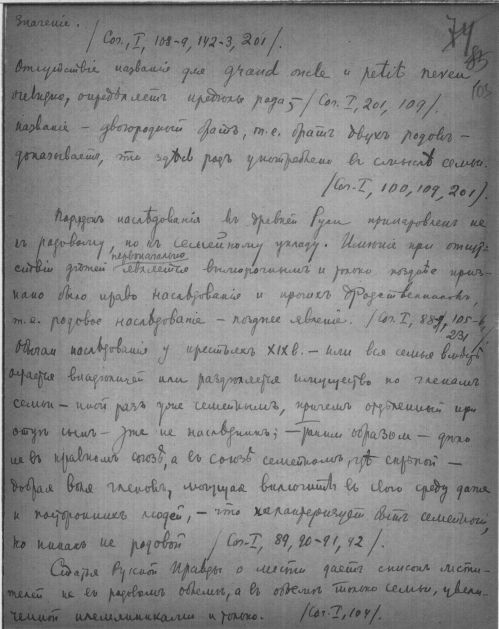 значеніе.
/ Соч., I, 108-9, 142-3, 201/.
74
85
103
Отсутствіе названія для grand oncle и petit neveu
очевидно, опредѣляетъ предѣлы рода /Соч. I, 201, 109/.
названіе – двоюродный братъ, т.е. братъ двухъ родовъ –
доказываетъ, что здѣсь родъ употреблено въ смыслѣ семьи.
/Соч. I, 100, 109, 201/.
Порядокъ наслѣдованія въ древней Руси приноровленъ не
къ родовому, но къ семейному укладу. Имѣніе при отсут-
первоначально
ствіи дѣтей является выморочнымъ и только позднѣе приз-
нано было право наслѣдованія и прочихъ родственниковъ,
т.е. родовое наслѣдованіе – позднее явленіе. /Соч. I, 88-9, 105-6,
231/
Обычаи наслѣдованія у крестьянъ XIX в. – или вся семья
остается владѣлицей или раздѣляется имущество по членамъ
семьи – иной разъ уже семейнымъ, причемъ отдѣленный при
отцѣ сынъ – уже не наслѣдникъ; – Такимъ образомъ – дѣло
не въ кровномъ союзѣ, а въ союзѣ семейномъ, гдѣ
добрая воля членовъ, могущая включить въ свою среду даже
и постороннихъ людей, – что характеризуетъ бытъ семейный,
но никакъ не родовой / Соч. I, 89, 90-91, 92 /.
Статья Русской Правды о мести даетъ списокъ мсти-
телей не въ родовомъ объемѣ, а въ объемѣ только семьи, увели-
ченной племянниками и только. /Соч. I, 104/.